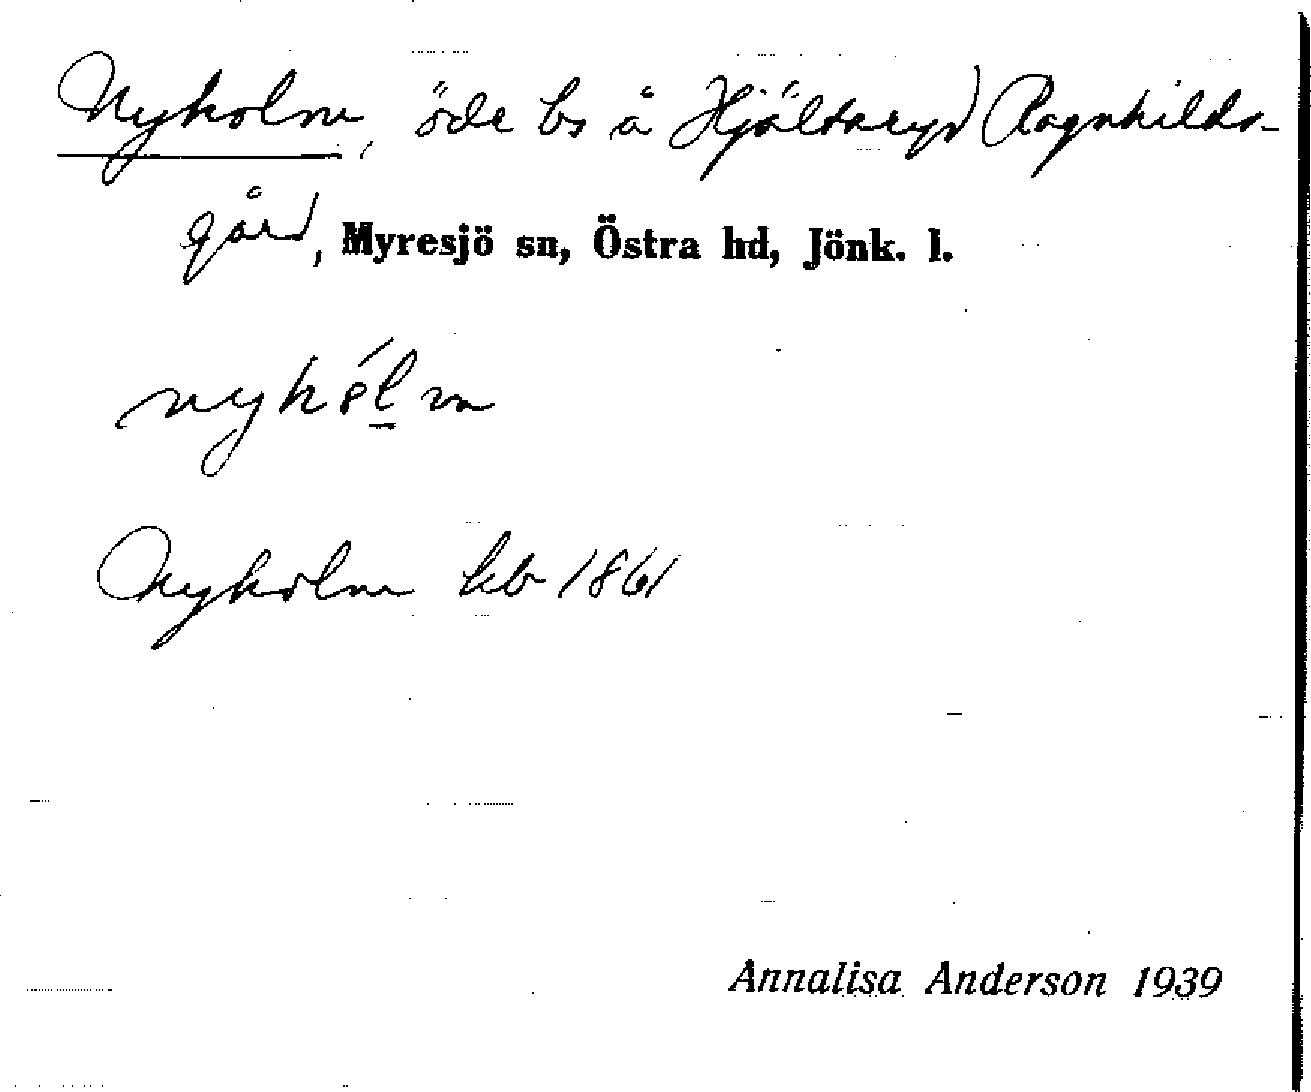 Nyholm, öde bs å Hjältaryd Ragnhilds-
gård, Myresjö sn, Östra hd, Jönk. l.
nyhól̲m
Nyholm hb 1861
Annalisa Anderson 1939